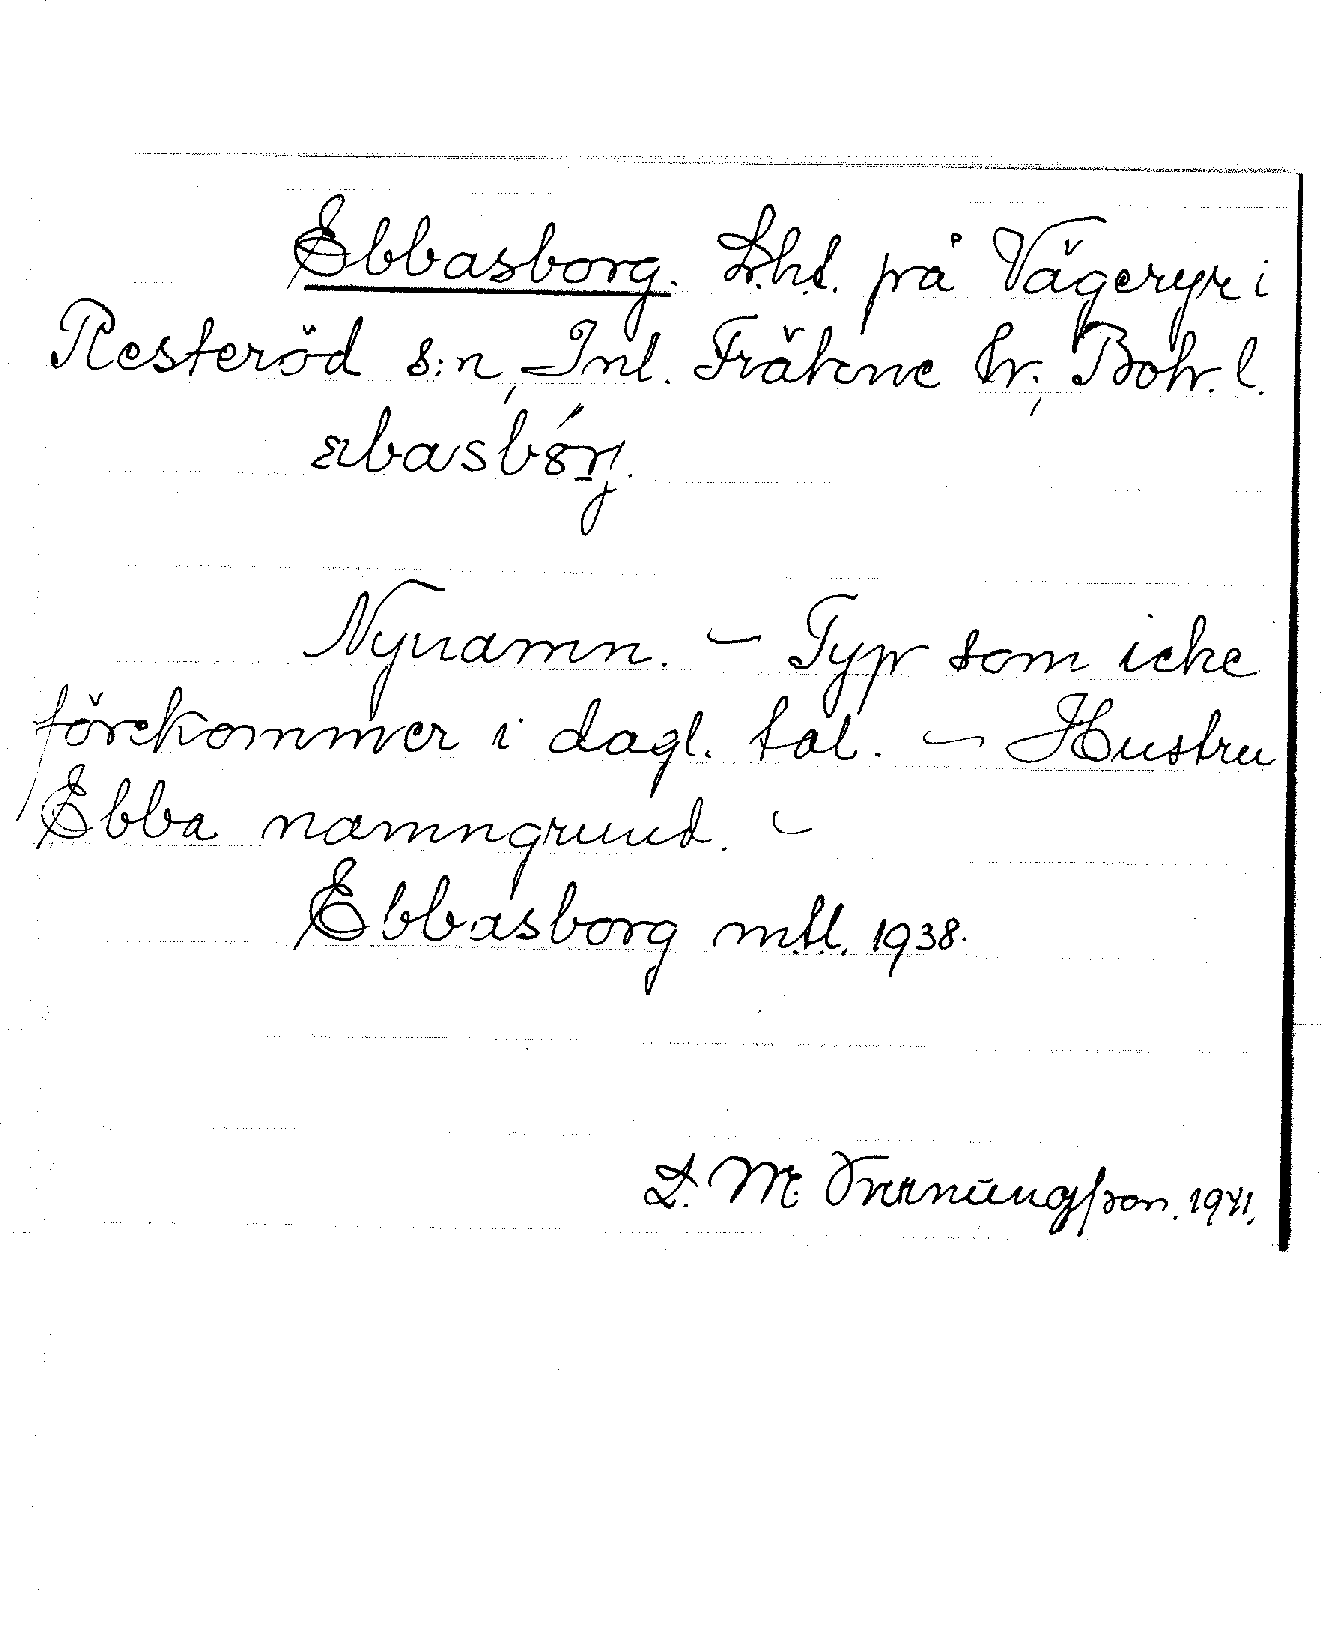 Ebbasborg. L.h.t. på Vägeryr i
Resteröd s:n, Inl. Fräkne hr., Boh. l.
Nynamn. – Typ som icke
förekommer i dagl. tal. – Hustru
Ebba namngrund. –
Ebbasborg mtl. 1938.
D. M. 1941.